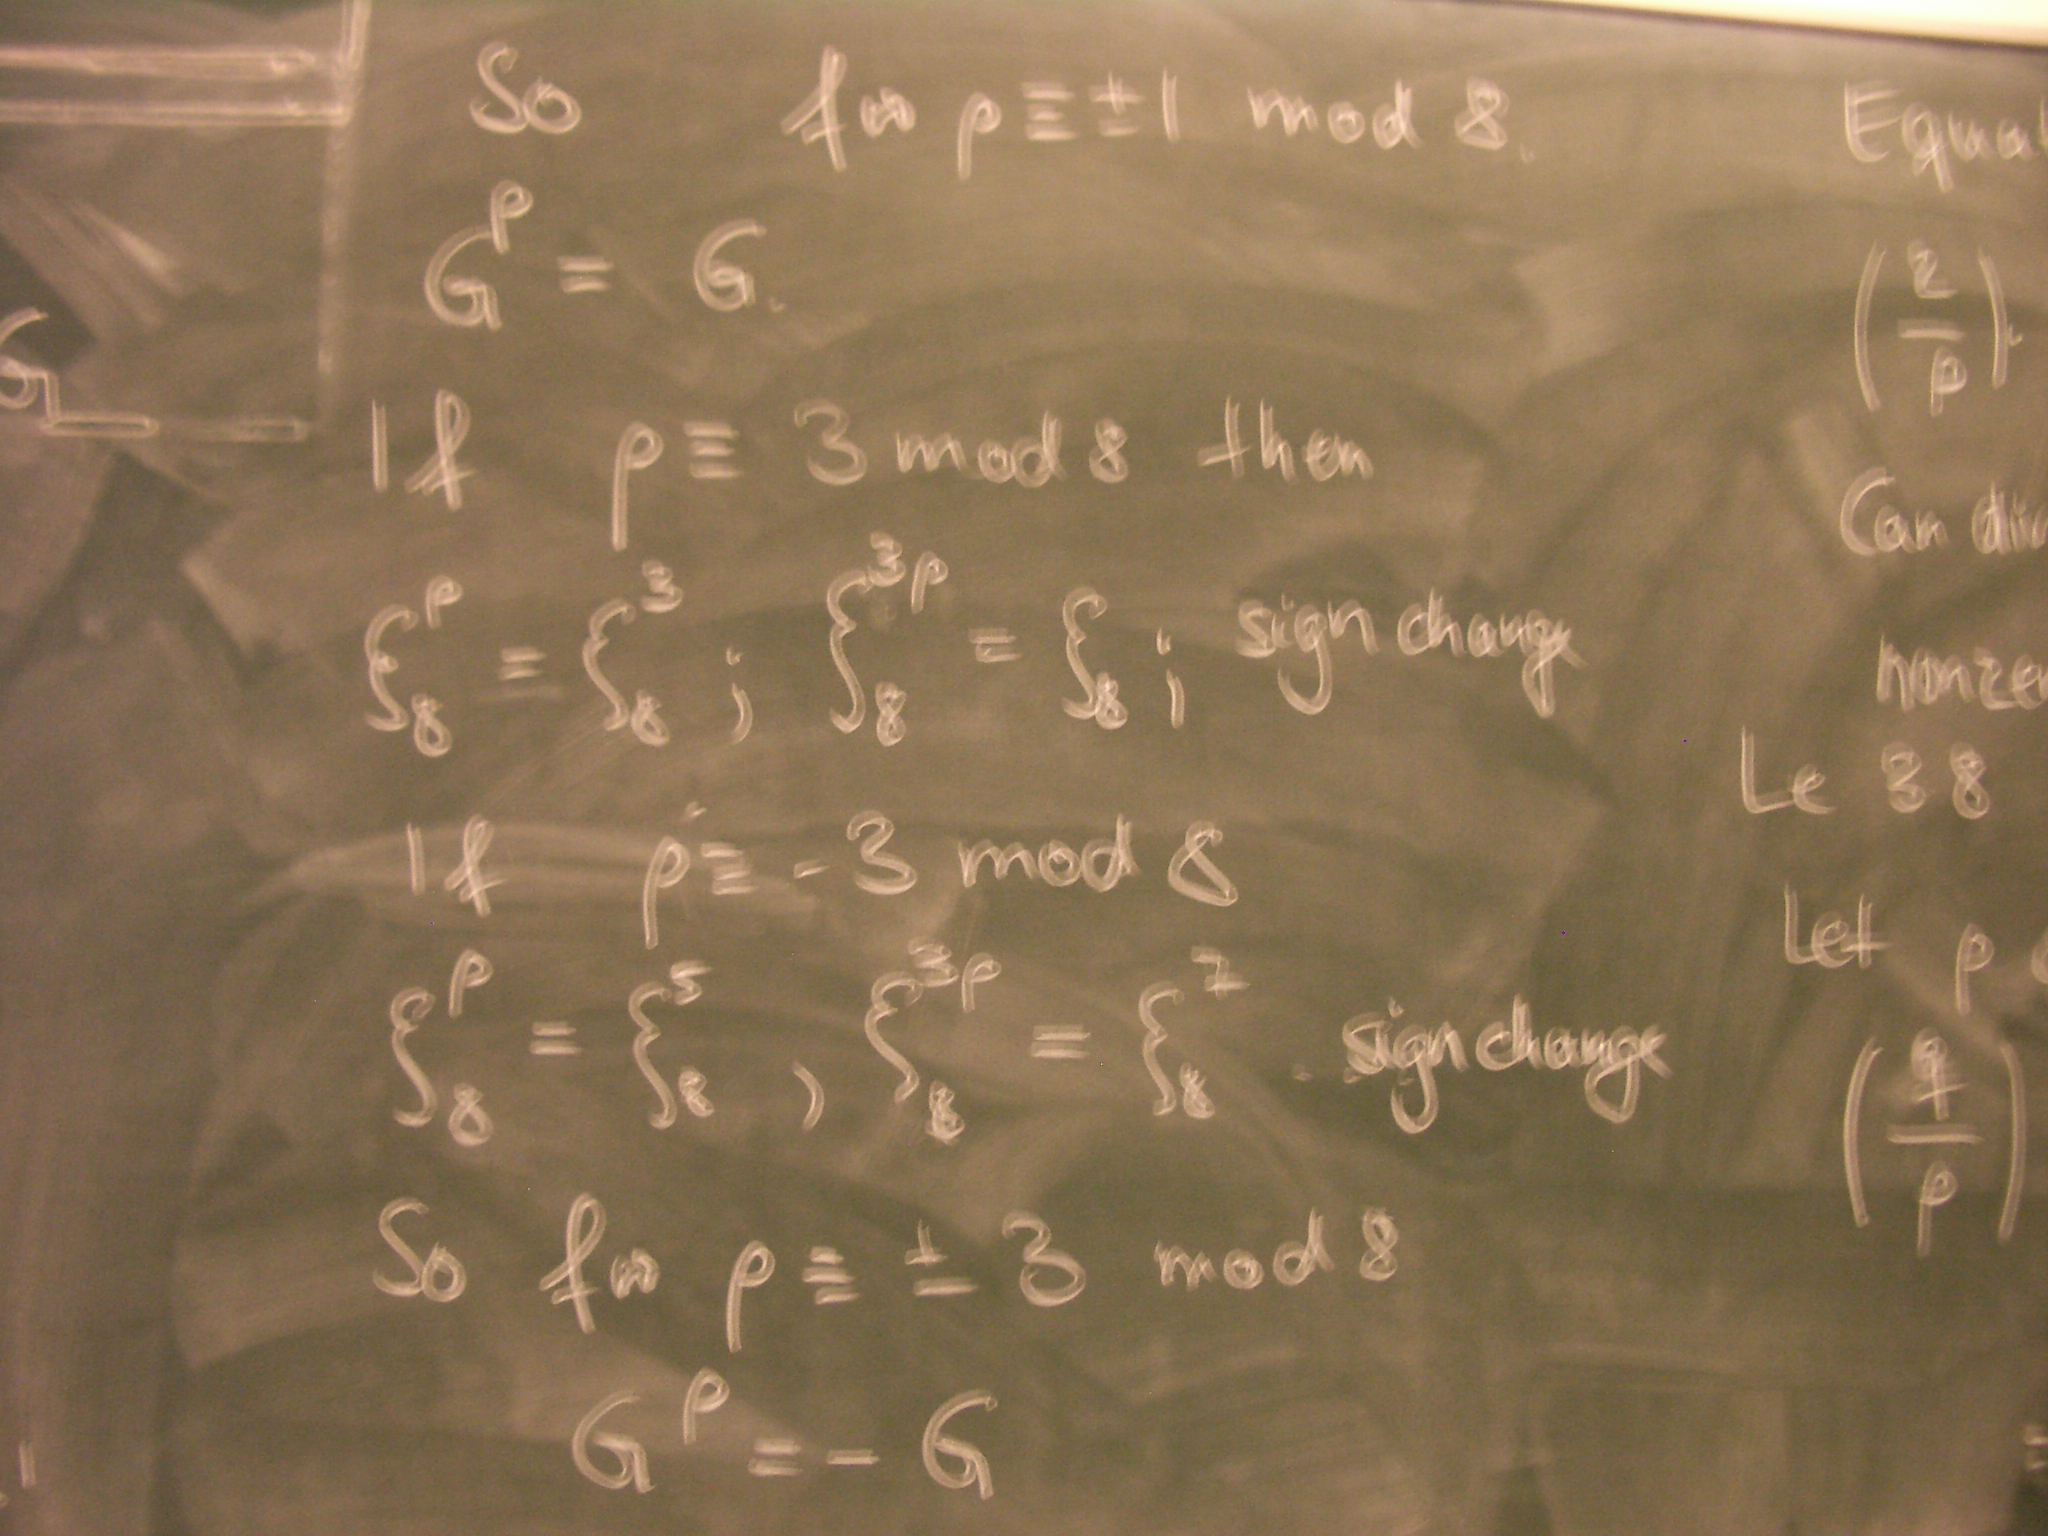 So for p ≡ ±1 mod 8.
G^p = G.
If p ≡ 3 mod 8 then
ζ_8^p = ζ_8^3 ; ζ_8^{3p} = ζ_8 ; sign change
If p ≡ -3 mod 8
ζ_8^p = ζ_8^5 , ζ_8^{3p} = ζ_8^7 . sign change
So for p ≡ ± 3 mod 8
G^p = - G
G
Equa
(2/p).
Can di
nonze
Le 38
Let p
(q/p)